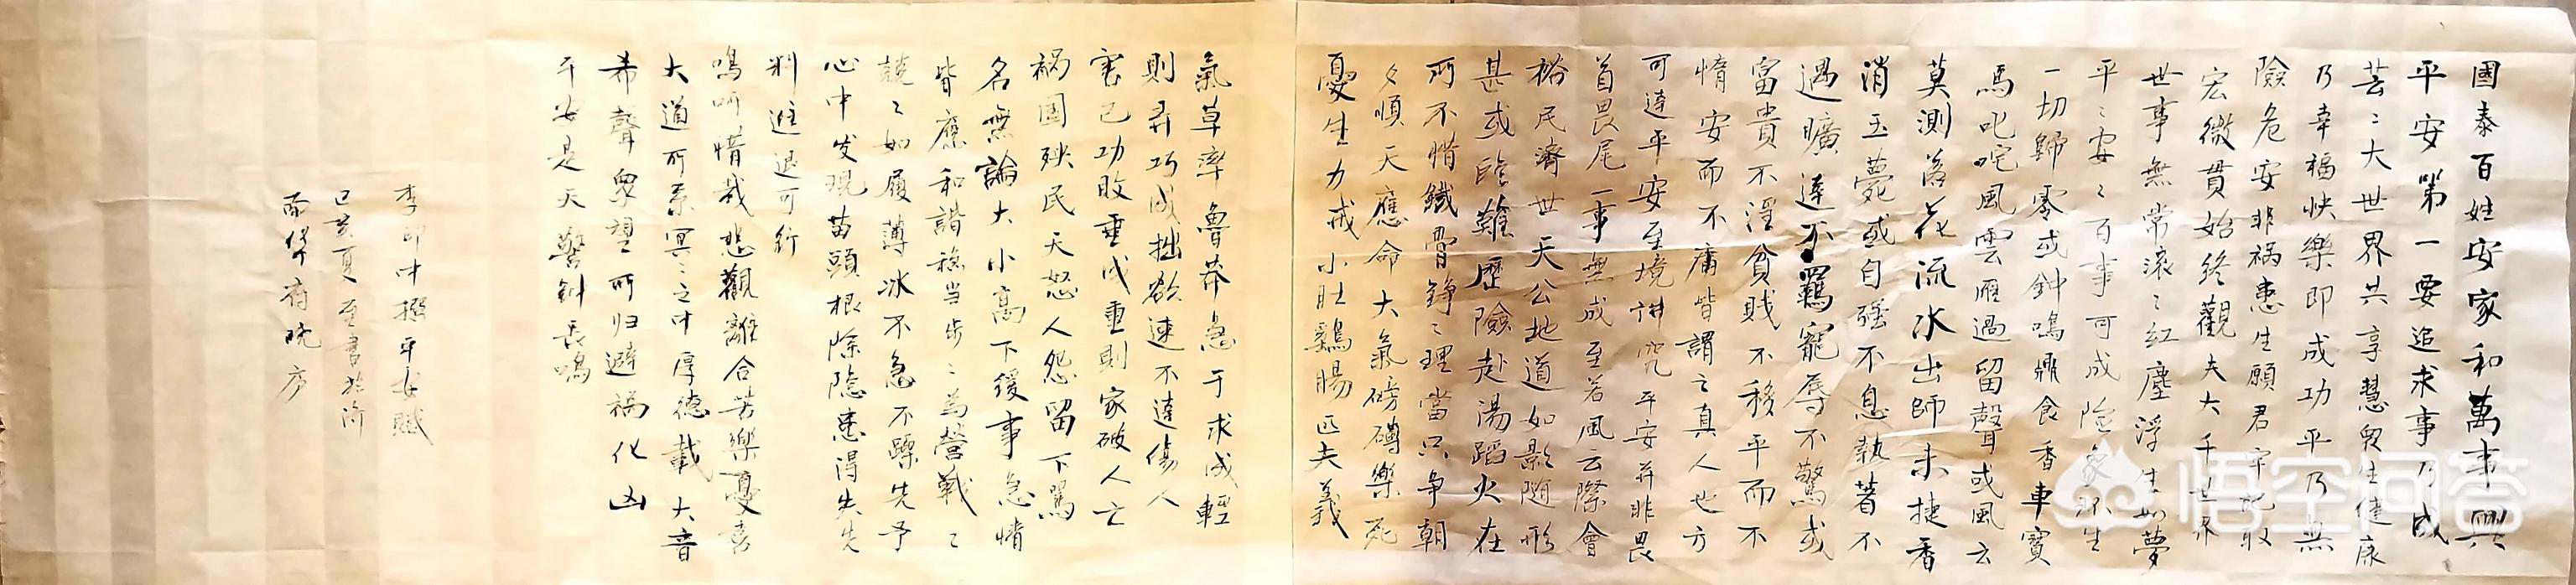 國泰百姓安家和萬事興
平安第一要追求事乃成
芸〻大世界共享慧眾生健康
乃幸福快樂即成功平乃無
險危安非祸患生願君牢记取
宏微貫始終觀夫大千世界
世事無常滚〻紅塵浮生如夢
平〻安〻百事可成险象环生
一切歸零或鈡鳴鼎食香車寳
馬叱咤風雲雁過留聲或風云
莫測落花流水出師未捷香
消玉薨或自强不息執著不
遇曠達不羈寵辱不驚或
富貴不淫貧賎不移平而不
惰安而不庸皆謂之真人也方
可達平安至境讲究平安并非畏
首畏尾一事無成至若風云際會
裕民濟世天公地道如影随形
甚或臨難歷險赴湯蹈火在
所不惜鐵骨錚〻理當只争朝
夕順天應命大氣磅礡樂死
憂生力戒小肚鷄腸匹夫義
氣草率魯莽急于求成輕
則弄巧成拙欲速不達傷人
害己功敗垂成重則家破人亡
祸國殃民天怒人怨留下駡
名無論大小高下緩事急情
皆應和諧稳当步〻為營戰〻
兢〻如履薄冰不急不躁先予
心中发現苗頭根除隐患得失先
料進退可行
鳴呼惜哉悲觀離合苦樂憂喜
大道所系冥〻之中厚德載大音
希聲眾望所归避禍化凶
平安是天警鈡長鳴
李印中撰平安賦
己亥夏至書於濟
南舜府晓方
悟空问答